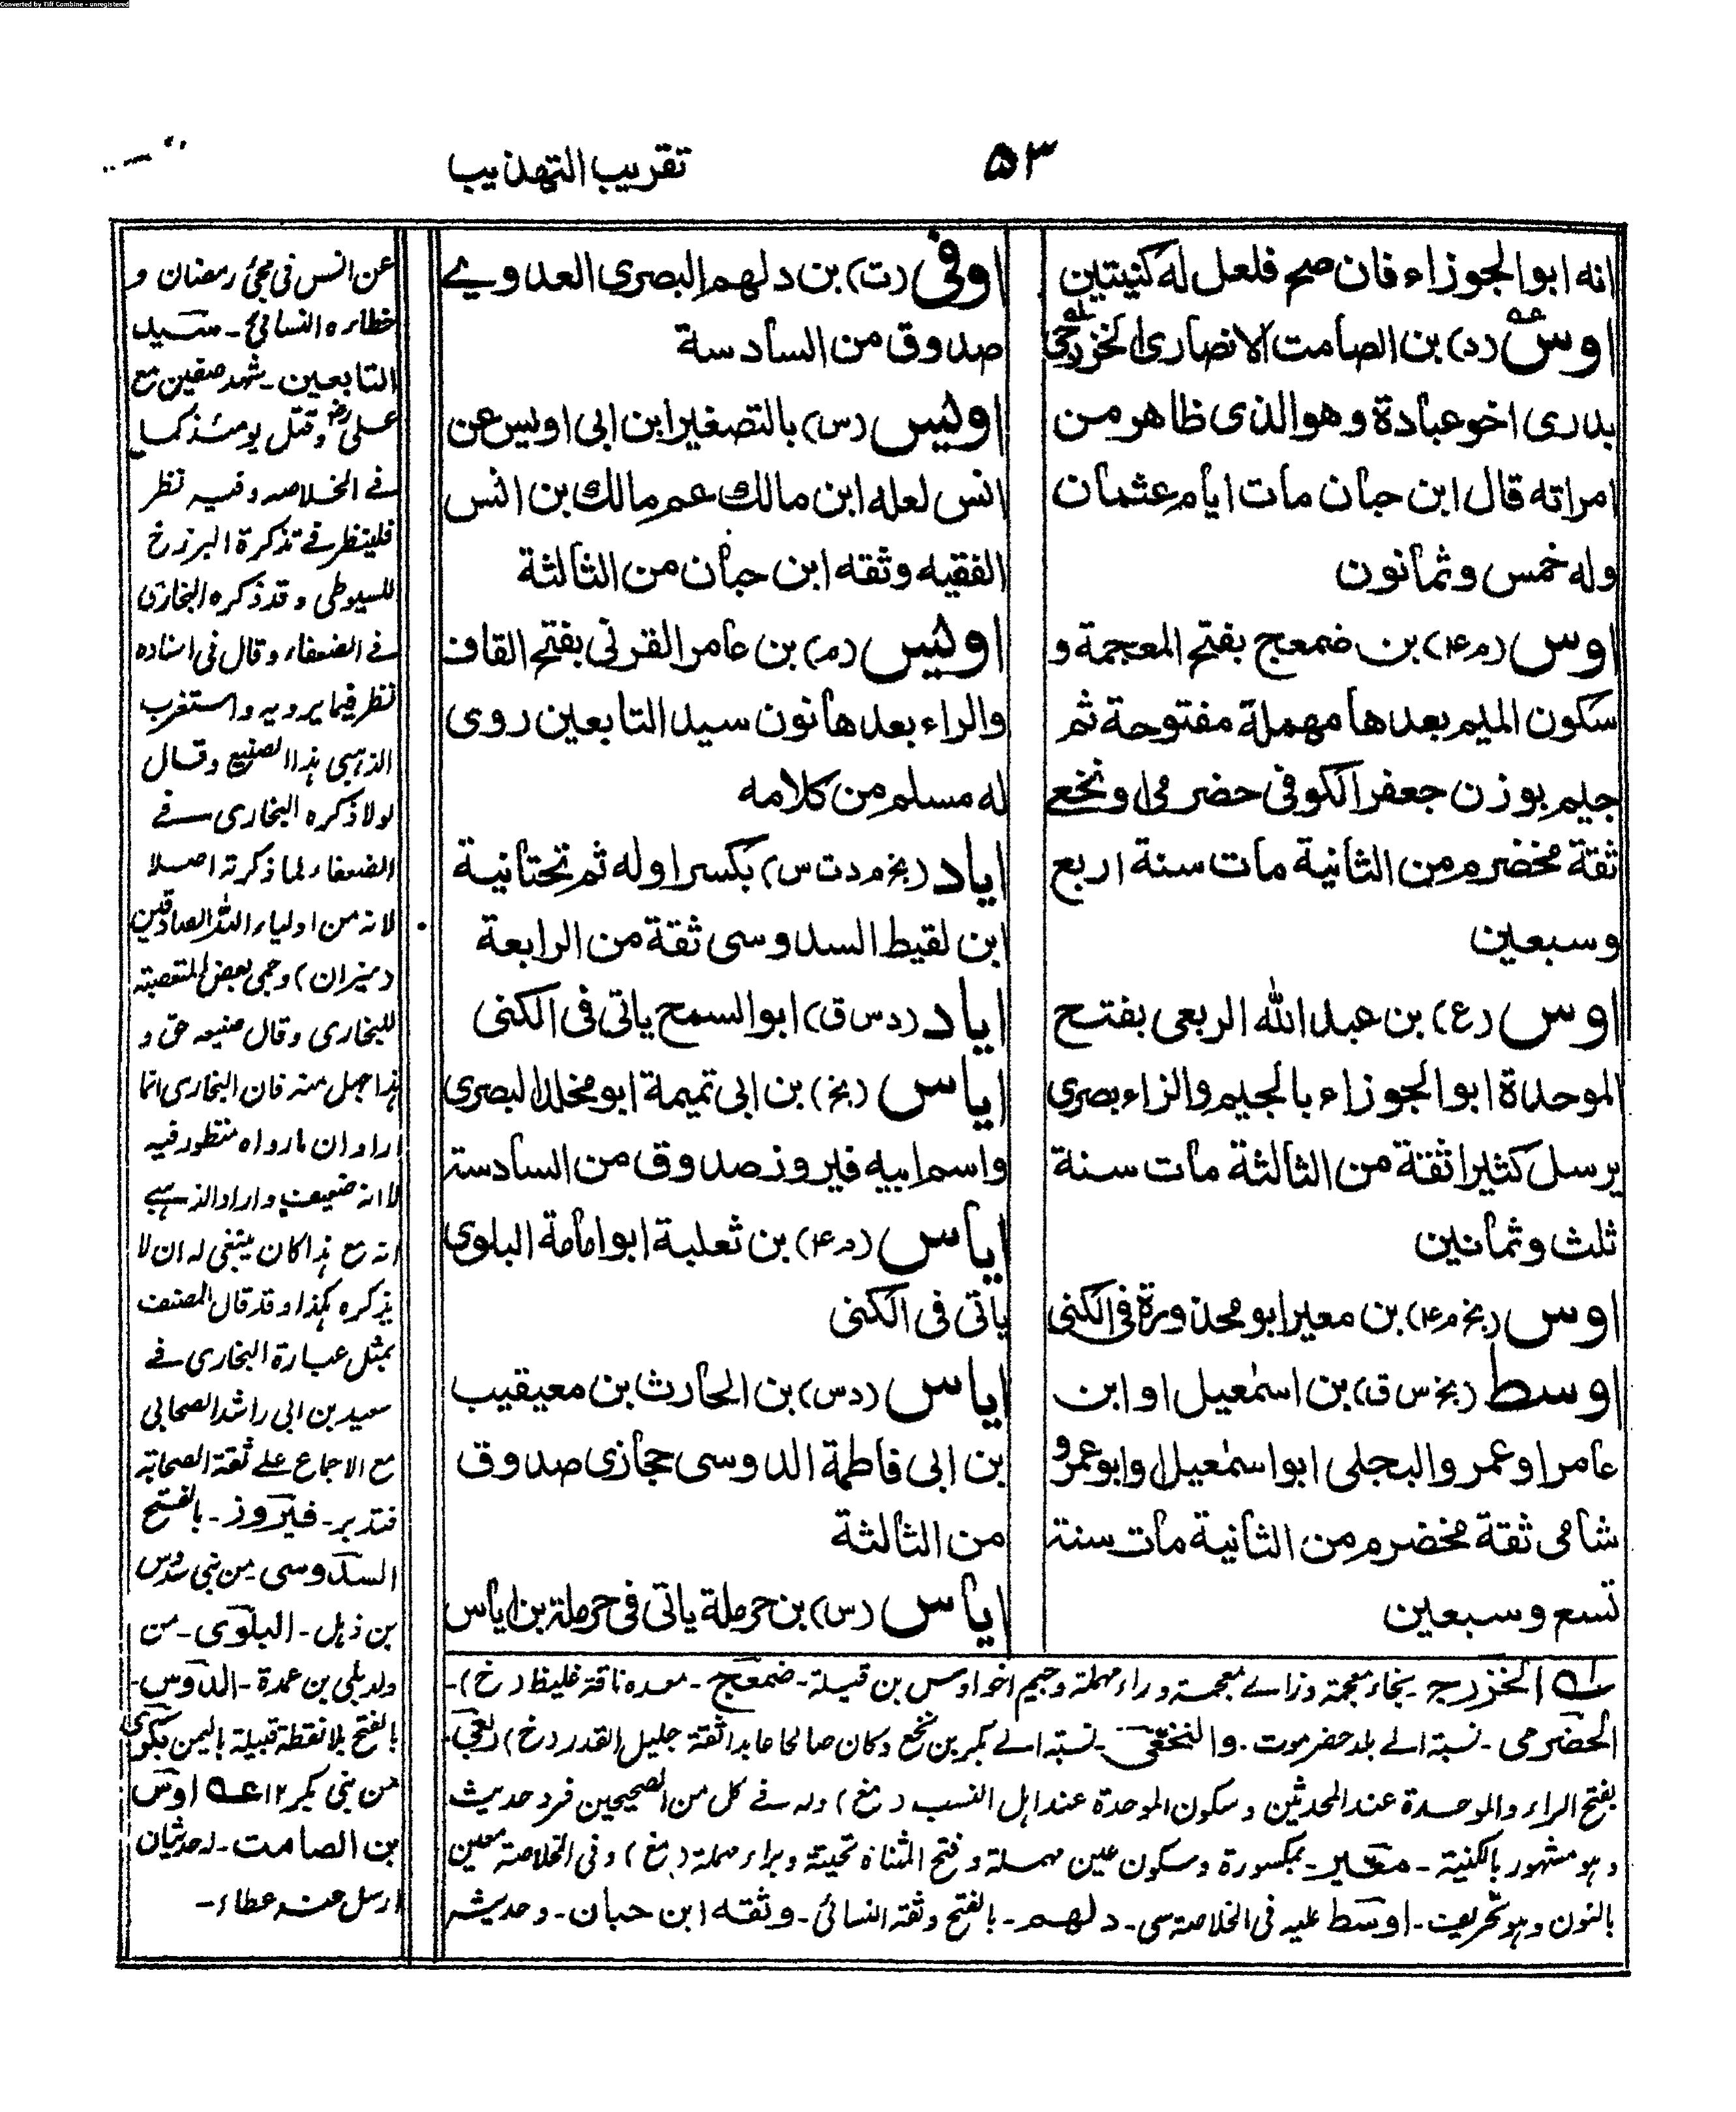 Converted by Tiff Combine - unregistered
۵۳
تقريب التهذيب
انه ابوالجوزاء فان صح فلعل له كنيتين
اوس (د) بن الصامت الانصاري الخزرجي
بدری اخو عبادة وهوالذی ظاهر من
امراته قال ابن حبان مات ايام عثمان
وله خمس وثمانون
اوس (م ۴) بن ضمعج بفتح المعجمة و
سكون الميم بعدها مهملة مفتوحة ثم
جيم بوزن جعفر الكوفی حضرمی او نخعی
ثقة مخضرم من الثانية مات سنة اربع
وسبعين
اوس (ع) بن عبد الله الربعی بفتح
الموحدة ابوالجوزاء بالجيم والزاء بصری
يرسل كثيرا ثقة من الثالثة مات سنة
ثلث وثمانين
اوس (بخ م ۴) بن معير ابو محذورة فی الكنی
اوسط (بخ س ق) بن اسمعيل او ابن
عامر او عمرو البجلی ابو اسمعيل وابو عمرو
شامی ثقة مخضرم من الثانية مات سنة
تسع وسبعين
اوفى (ت) بن دلهم البصری العدوی
صدوق من السادسة
اويس (س) بالتصغير ابن ابی اويس عن
انس لعله ابن مالك عم مالك بن انس
الفقيه وثقه ابن حبان من الثالثة
اويس (م) بن عامر القرنی بفتح القاف
والراء بعدها نون سيد التابعين روی
له مسلم من كلامه
اياد (بخ م د ت س) بكسر اوله ثم تحتانية
ابن لقيط السدوسی ثقة من الرابعة
اياد (د س ق) ابو السمح ياتی فی الكنی
اياس (بخ) بن ابی تميمة ابو مخلد البصری
واسم ابيه فيروز صدوق من السادسة
اياس (م ۴) بن ثعلبة ابو امامة البلوی
ياتی فی الكنی
اياس (د س) بن الحارث بن معيقيب
بن ابی فاطمة الدوسی حجازی صدوق
من الثالثة
اياس (س) بن حرملة ياتی فی حرملة بن اياس
عن انس فی مجئ رمضان و
خطاره النسائی ـ سيد
التابعين ـ شهد صفين مع
علی رض وقتل يومئذ كما
فی الخلاصه وفيه نظر
فلينظر فی تذكرة البرزخ
للسيوطی وقد ذكره البخاری
فی الضعفاء وقال فی اسناده
نظر فيما يرويه واستغرب
الذهبی هذا الصنيع وقال
لولا ذكره البخاری فی
الضعفاء لما ذكرته اصلا
لانه من اولياء الله الصادقين
(ميزان) وحمی بعض المتعصبة
للبخاری وقال صنيعه حق و
هذا جهل منه فان البخاری انما
اراد ان مارواه منظور فيه
لا انه ضعيف واراد الذهبی
انه مع هذا كان ينبغی له ان لا
يذكره هكذا وقد قال المصنف
بمثل عبارة البخاری فی
سعيد بن ابی راشد الصحابی
مع الاجماع علی ثقة الصحابة
فتدبر ـ فيروز ـ بالفتح
السدوسی ـ من بنی سدوس
بن ذهل ـ البلوی ـ من
ولد بلی بن عمدة ـ الدوس ـ
بالفتح بلا نقطة قبيلة باليمن
من بنی بكر ۱۲ عه اوس
بن الصامت ـ له حديثان
ارسل عنه عطاء ـ
له الخزرج ـ بخاء معجمة وزای معجمة وراء مهملة وجيم اخو اوس بن قيلة ـ ضمعج ـ معده ناقة غليظ (خ) ـ
الحضرمی ـ نسبة الی بلد حضرموت ـ والنخعی ـ نسبة الی بكر بن نخع وكان صالحا عابدا ثقة جليل القدر (خ) ربعی ـ
بفتح الراء والموحدة عند المحدثين وسكون الموحدة عند اهل النسب (مغ) وله فی كل من الصحيحين فرد حديث
وهو مشهور بالكنية ـ معير ـ بمكسورة وسكون عين مهملة وفتح المثناة تحتية وبراء مهملة (مغ) وفی الخلاصة معين
بالنون وهو تحريف ـ اوسط عليه فی الخلاصة سی ـ دلهم ـ بالفتح وثقة النسائی ـ وثقه ابن حبان ـ وحديثه